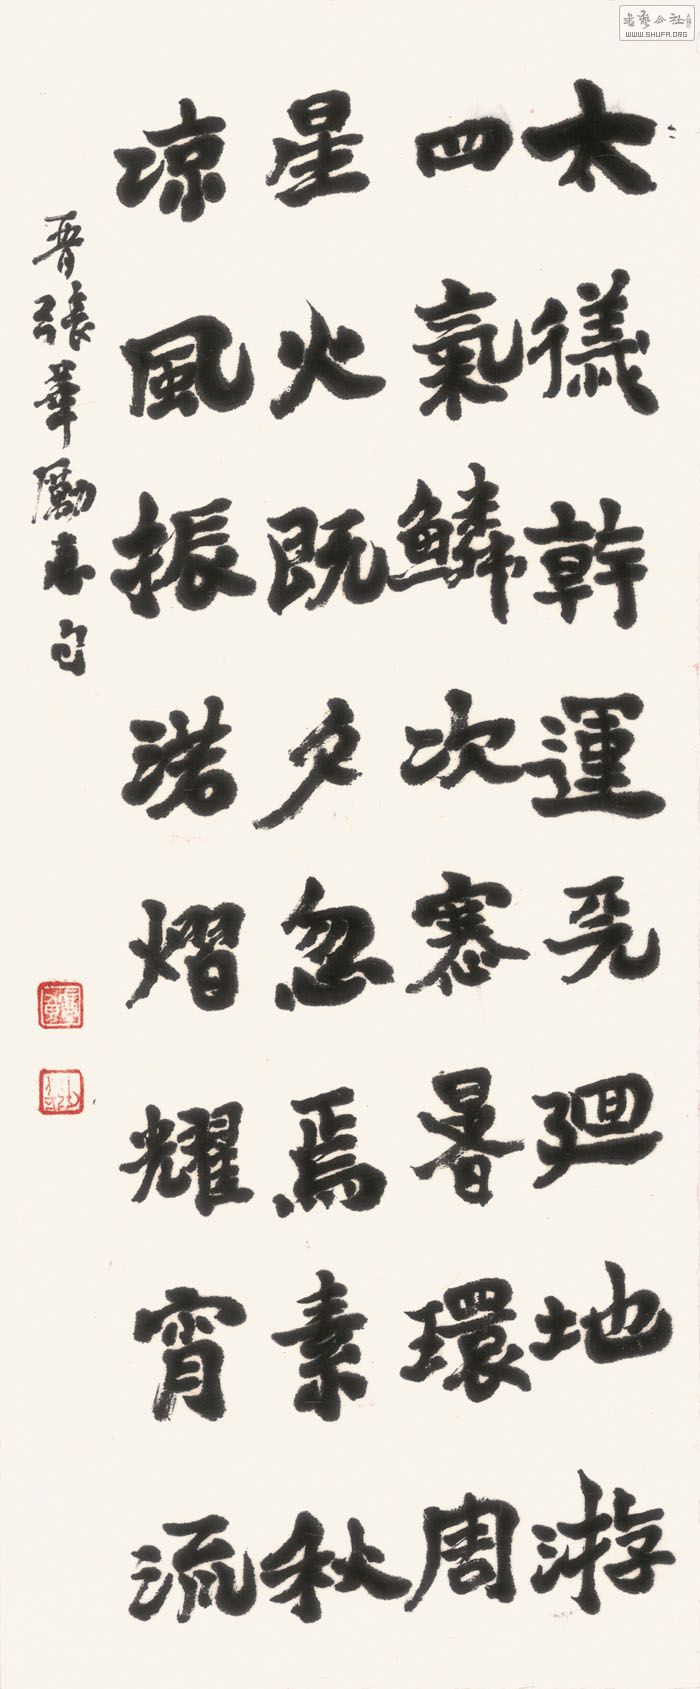 太儀幹運天廻地游
四氣鱗次寒暑環周
星火既夕忽焉素秋
凉風振落熠耀宵流
晋張華勵志句
書藝公社
WWW.SHUFA.ORG